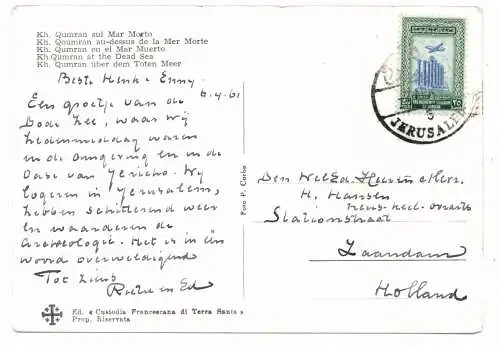 Kh. Qumran sul Mar Morto
Kh. Qoumran au-dessus de la Mer Morte
Kh. Qumran en el Mar Muerto
Kh. Qumran at the Dead Sea
Kh. Qumran über dem Toten Meer
Beste Henk & Enny, 6.4.61
Een groetje van de
Dode Zee, waar wij
hedenmiddag waren
in de omgeving en in de
Oase van Jericho. Wij
logeren in Jerusalem,
hebben schitterend weer
en waarderen de
Archeologie. Het is in één
woord overweldigend
Tot ziens
en Ed
Ed. « Custodia Francescana di Terra Santa »
Prop. Riservata
Foto P. Corbo
JERUSALEM
Den WelEd. Heer
H. Hansen
Stationstraat
Zaandam
Holland